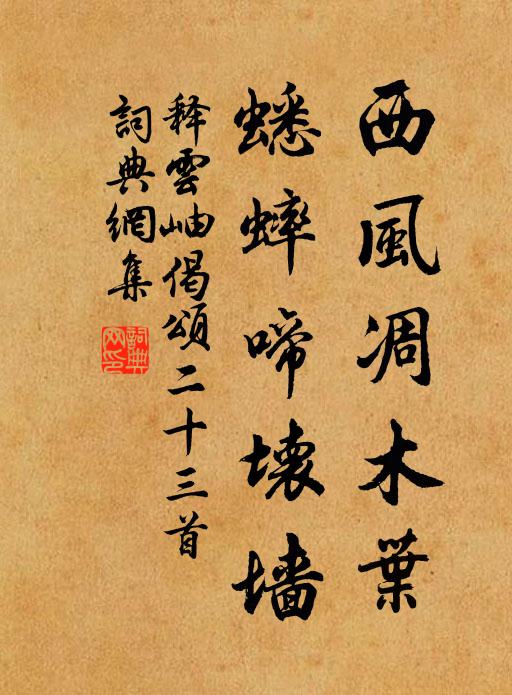 西風凋木葉
蟋蟀啼壞墙
释雲岫偈頌二十三首
詞典網集
詞典网印